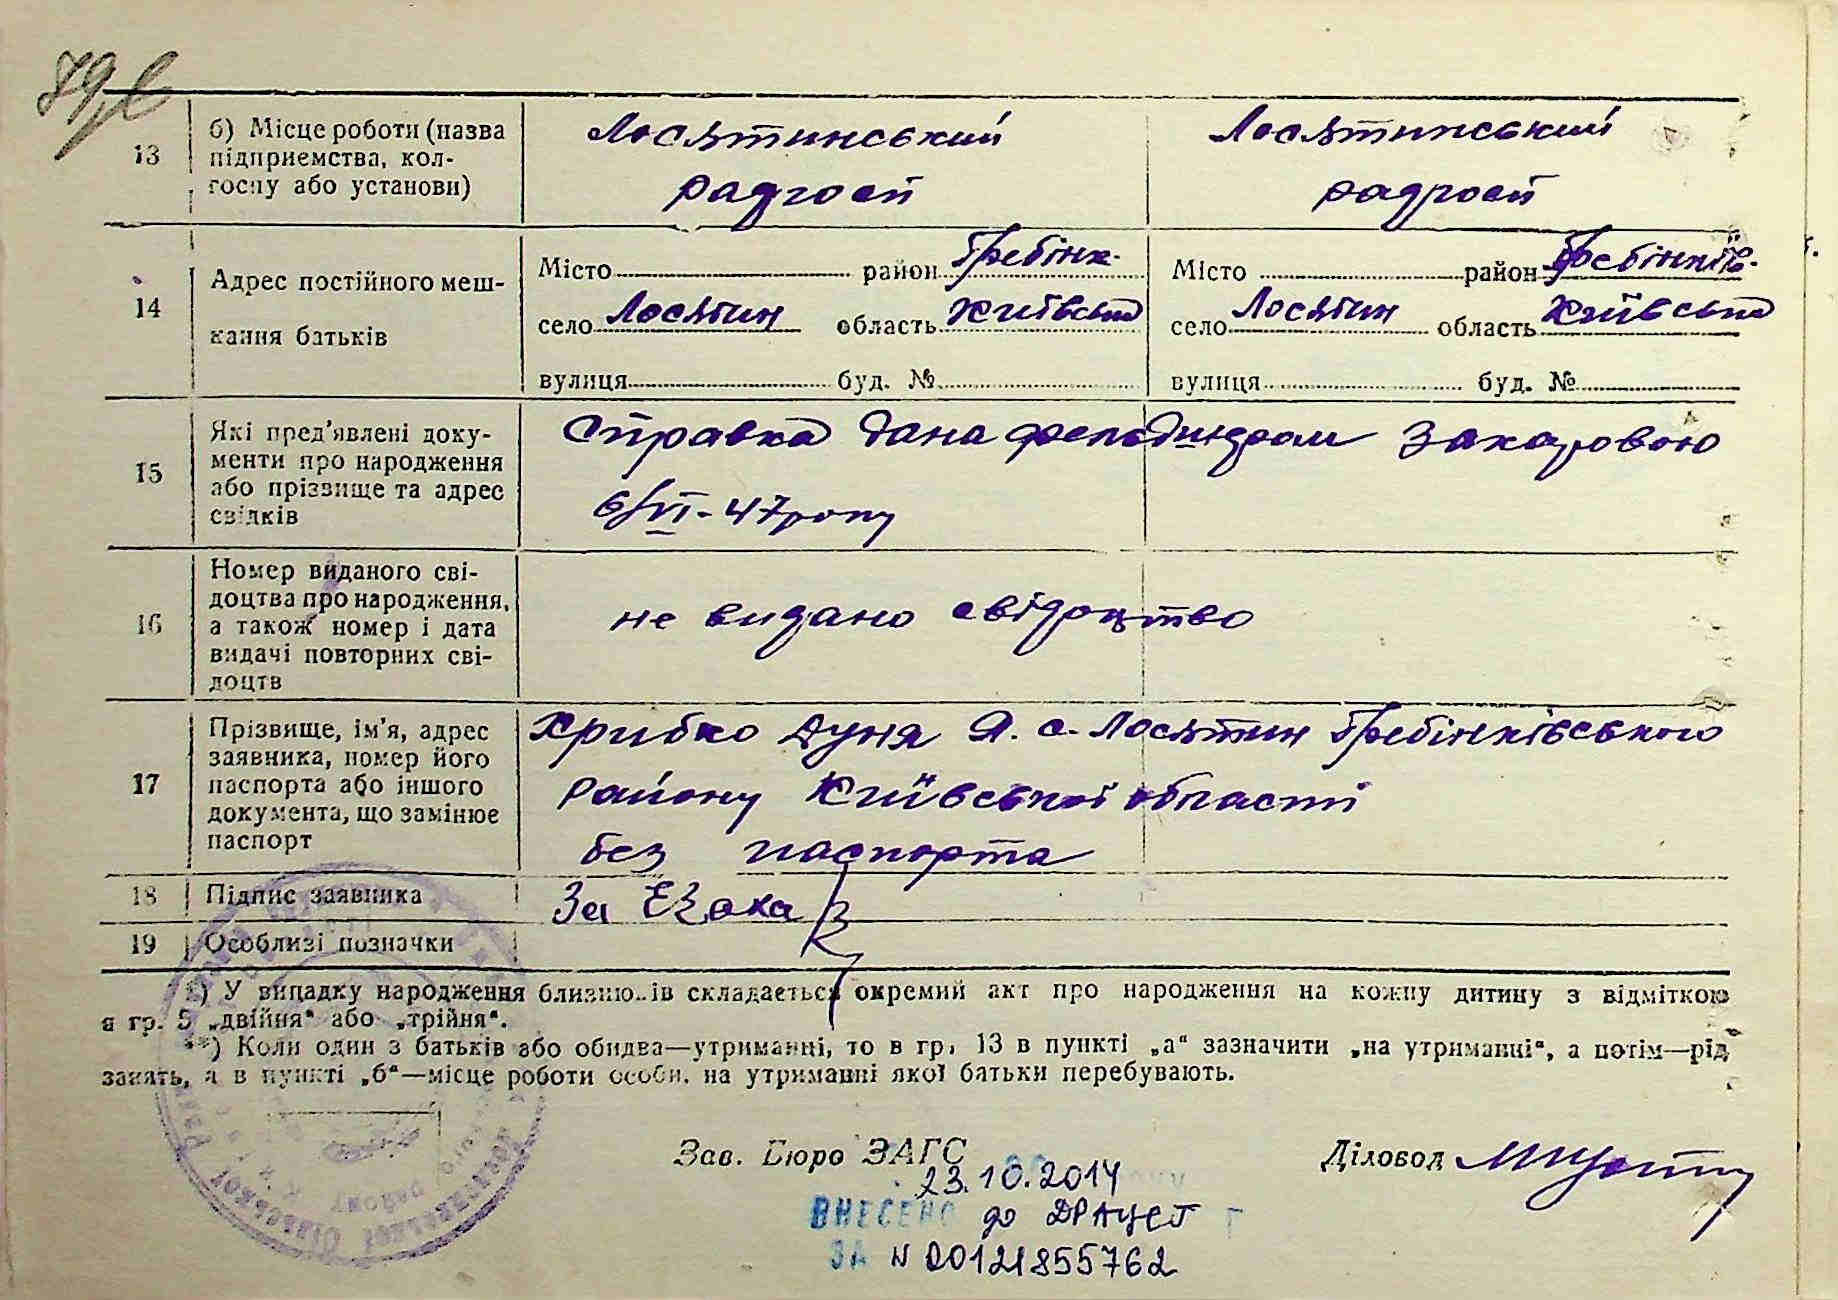 13 б) Місце роботи (назва підприємства, колгоспу або установи)
Лосятинський радгосп
Лосятинський радгосп
14 Адрес постійного мешкання батьків
Місто район Гребінк.
село Лосятин область Київська
вулиця буд. №
Місто район Гребінків.
село Лосятин область Київська
вулиця буд. №
15 Які пред'явлені документи про народження або прізвище та адрес свідків
Справка дана Захаровою
6/VI-47 року
16 Номер виданого свідоцтва про народження, а також номер і дата видачі повторних свідоцтв
не видано свідоцтво
17 Прізвище, ім'я, адрес заявника, номер його паспорта або іншого документа, що замінює паспорт
Хрибко Дуня Я. с. Лосятин Гребінківського
району Київської області
без паспорта
18 Підпис заявника
За
19 Особливі позначки
*) У випадку народження близнюків складається окремий акт про народження на кожну дитину з відміткою
в гр. 5 „двійня" або „трійня".
**) Коли один з батьків або обидва—утриманці, то в гр. 13 в пункті „а" зазначити „на утриманні", а потім—рід
занять, а в пункті „б"—місце роботи особи, на утриманні якої батьки перебувають.
Зав. Бюро ЗАГС
Діловод
23.10.2014
ВНЕСЕНО до ДРАЦСГ
ЗА N 00121855762